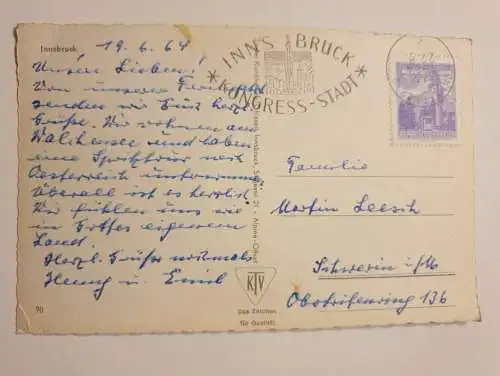 Innsbruck
19.6.64
Unsere Lieben!
Von unserer
senden wir Euch herzl.
Grüße. Wir wohnen am
Walchensee und haben
eine nach
Österreich unternommen
Überall ist es herrlich.
Wir fühlen uns wie
in Gottes eigenem
Land.
Herzl. Grüße nochmals
u. Emil
70
INNSBRUCK
KONGRESS-STADT
Familie
Martin Leesch
Schwerin i/M
136
KTV
Das Zeichen
für Qualität